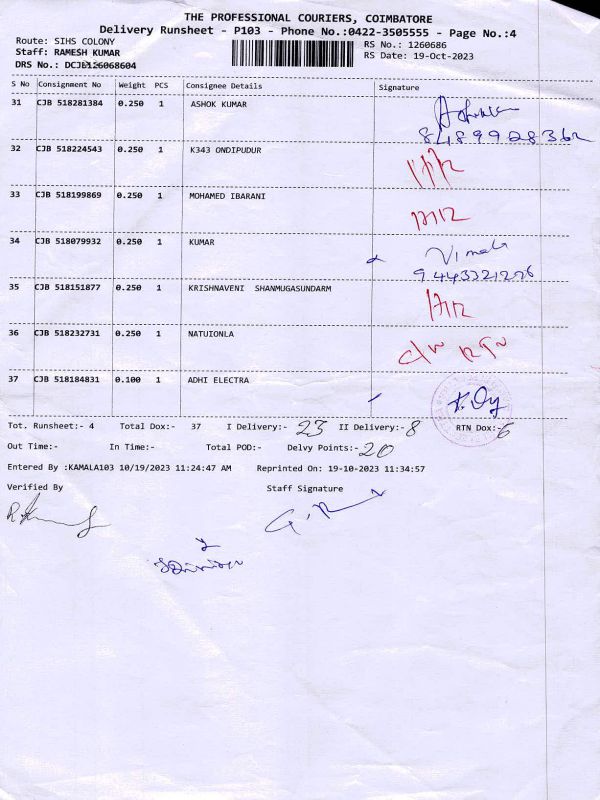 THE PROFESSIONAL COURIERS, COIMBATORE
Delivery Runsheet - P103 - Phone No.:0422-3505555 - Page No.:4
Route: SIHS COLONY RS No.: 1260686
Staff: RAMESH KUMAR RS Date: 19-Oct-2023
DRS No.: DCJB126068604
S No Consignment No Weight PCS Consignee Details Signature
31 CJB 518281384 0.250 1 ASHOK KUMAR
8489928362
32 CJB 518224543 0.250 1 K343 ONDIPUDUR
33 CJB 518199869 0.250 1 MOHAMED IBARANI
34 CJB 518079932 0.250 1 KUMAR Vimala
9443321276
35 CJB 518151877 0.250 1 KRISHNAVENI SHANMUGASUNDARM
36 CJB 518232731 0.250 1 NATUIONLA
37 CJB 518184831 0.100 1 ADHI ELECTRA
Tot. Runsheet:- 4 Total Dox:- 37 I Delivery:- 23 II Delivery:- 8 RTN Dox:- 6
Out Time:- In Time:- Total POD:- Delvy Points:- 20
Entered By :KAMALA103 10/19/2023 11:24:47 AM Reprinted On: 19-10-2023 11:34:57
Verified By Staff Signature